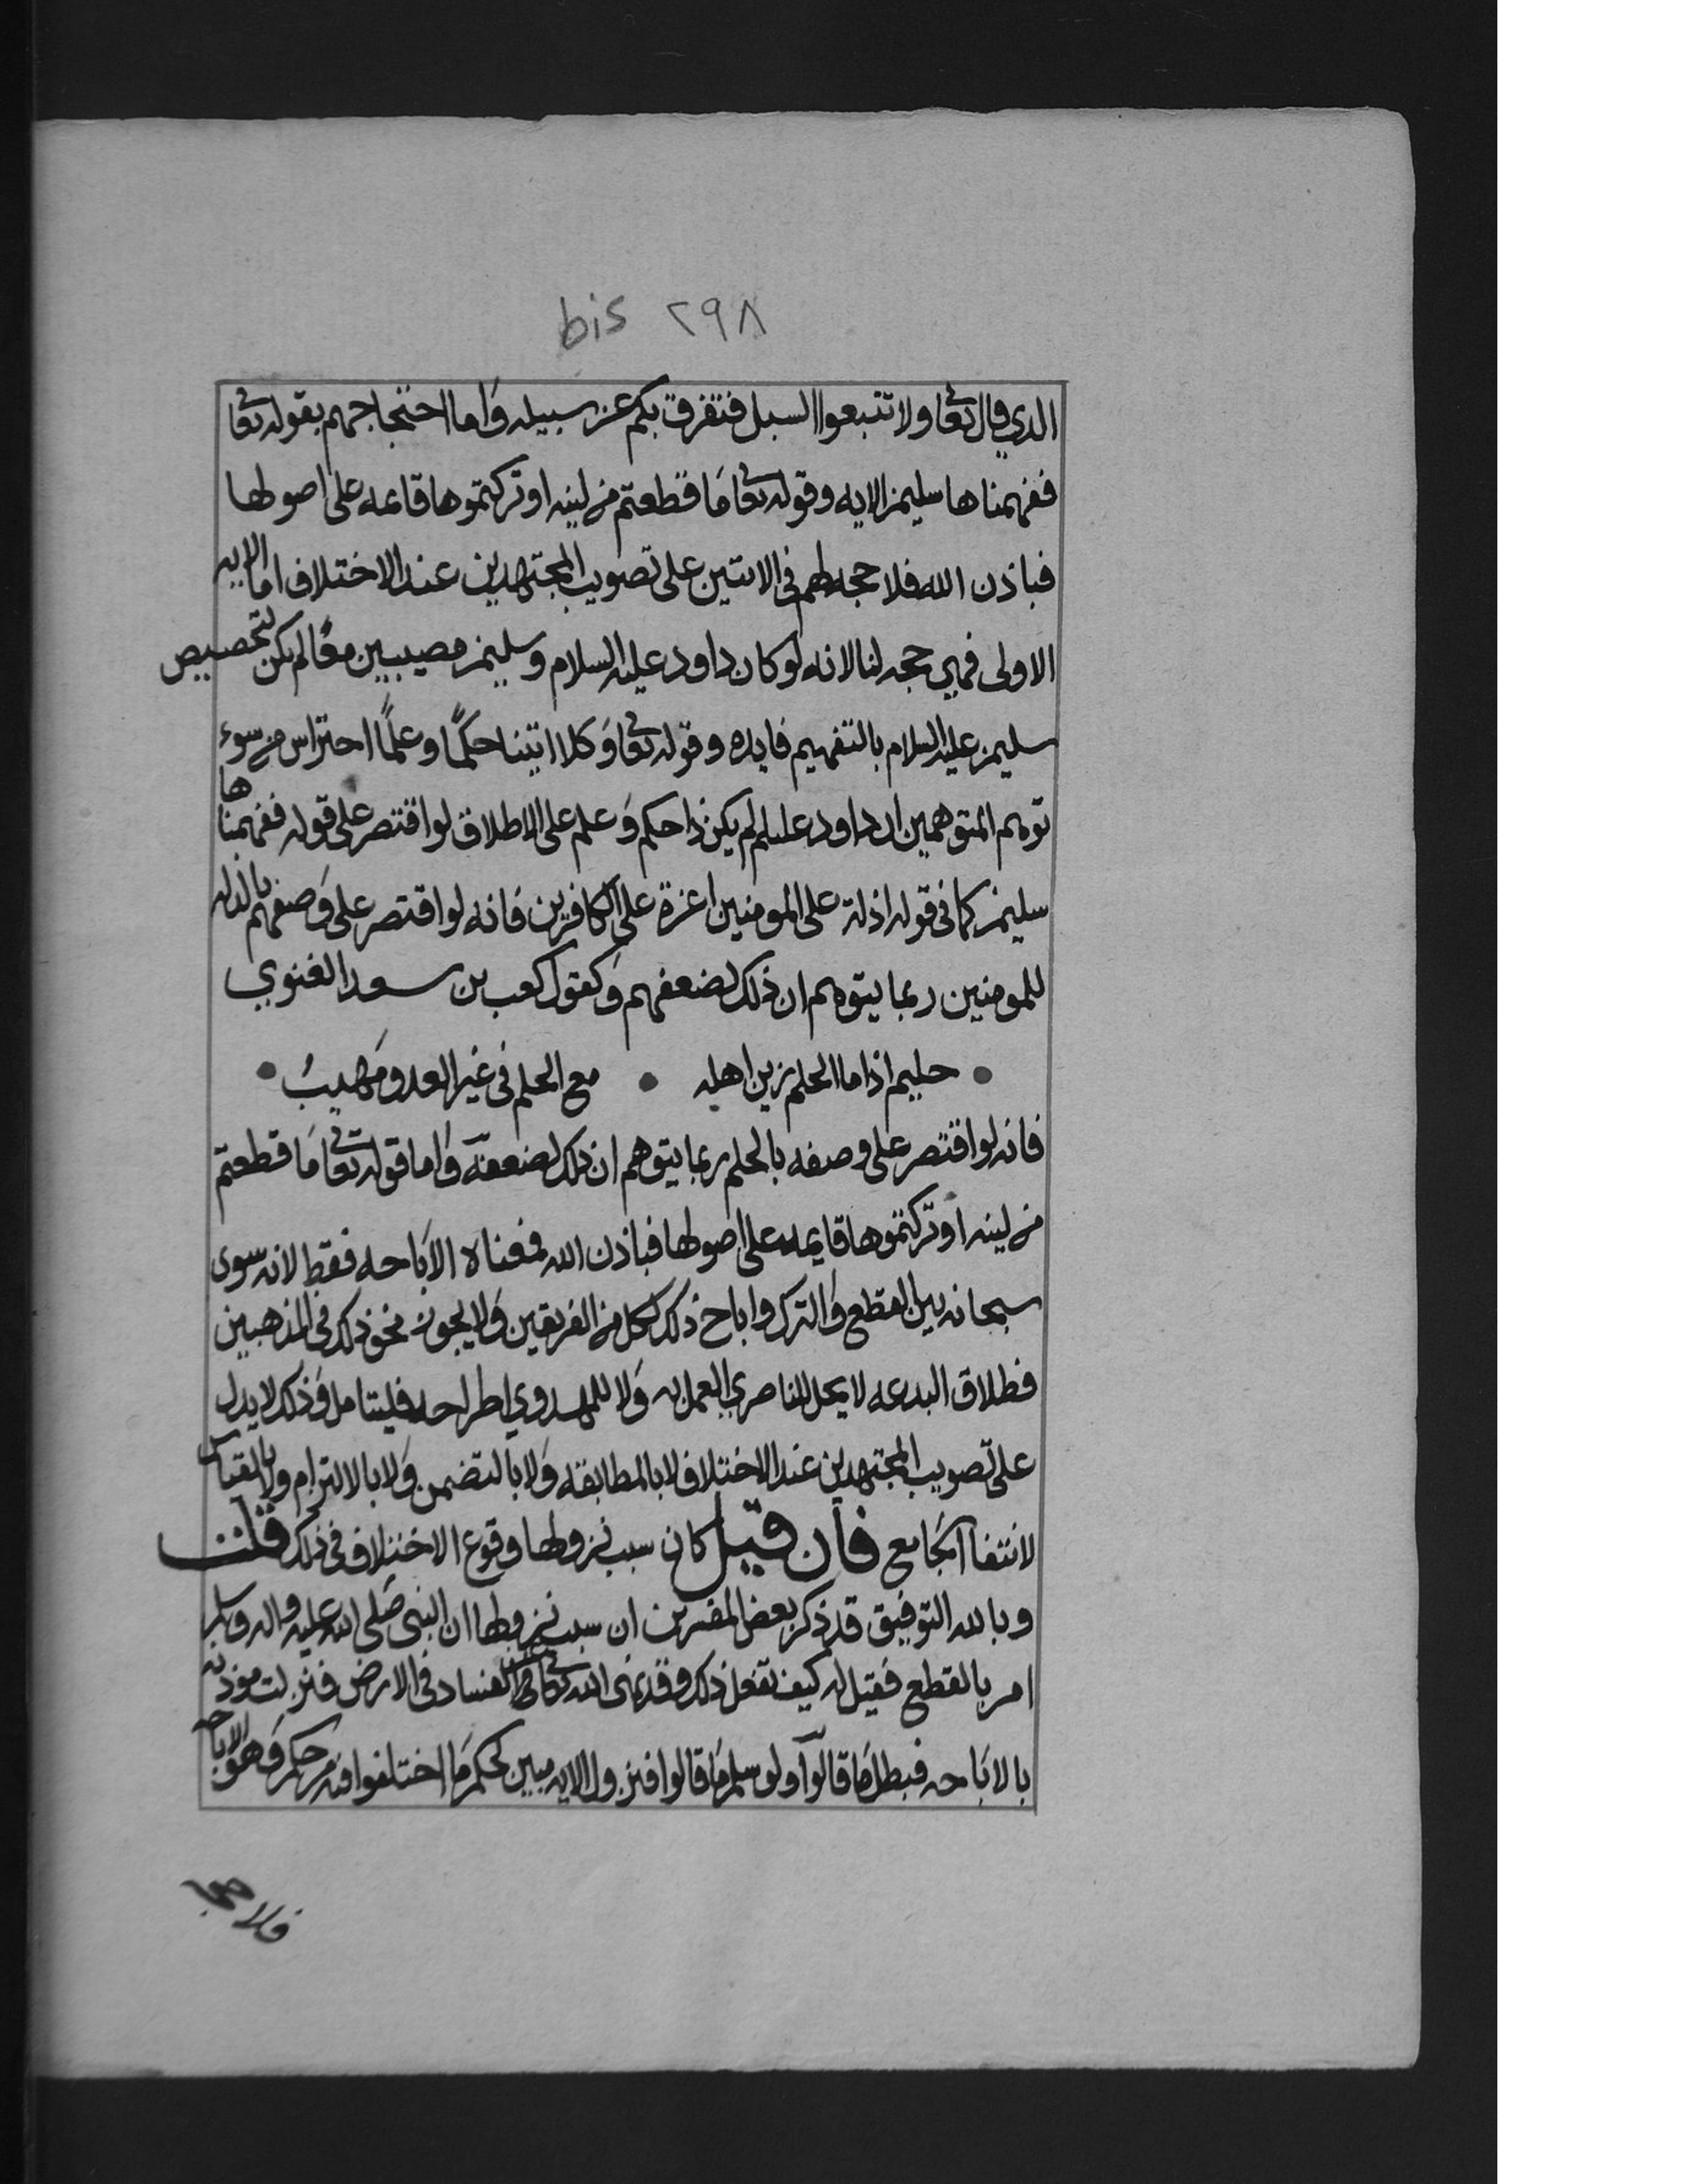 bis ٢٩٨
الذي قال تعا ولا تتبعوا السبل فتفرق بكم عن سبيله واما احتجاجهم بقوله تعا
ففهمناها سليمن الايه وقوله تعا ما قطعتم من لينه او تركتموها قايمه على اصولها
فباذن الله فلا حجه لهم في الايتين على تصويب المجتهدين عند الاختلاف اما الايه
الاولى فهي حجه لنا لانه لو كان داود عليه السلام وسليمن مصيبين معًا لم يكن لتخصيص
سليمن عليه السلام بالتفهيم فايده وقوله تعا وكلا اتينا حكمًا وعلمًا احتراس من سوء
توهم المتوهمين ان داود عليلم لم يكن ذا حكم وعلم على الاطلاق لو اقتصر على قوله ففهمناها
سليمن كما في قوله اذلة على المومنين اعزة على الكافرين فانه لو اقتصر على وصفهم بالذله
للمومنين ربما يتوهم ان ذلك لضعفهم وكقول كعب بن سعد الغنوي
• حليم اذا ما الحلم زين اهله • مع الحلم في غير العدو مهيبُ •
فانه لو اقتصر على وصفه بالحلم ربما يتوهم ان ذلك لضعفه واما قوله تعا ما قطعتم
من لينه او تركتموها قايمه على اصولها فباذن الله فمعناه الاباحه فقط لانه سوى
سبحانه بين القطع والترك واباح ذلك لكل من الفريقين ولا يجوز نحو ذلك في المذهبين
فطلاق البدعه لا يحل للناصري العمل به ولا للهدوي اطراحه فليتامل وذلك لا يدل
على تصويب المجتهدين عند الاختلاف لا بالمطابقه ولا بالتضمن ولا بالالتزام ولا بالقياس
لانتفا الجامع فان قيل كان سبب نزولها وقوع الاختلاف في ذلك قلت
وبالله التوفيق قد ذكر بعض المفسرين ان سبب نزولها ان النبي صلى الله عليه واله وسلم
امر بالقطع فقيل له كيف تفعل ذلك وقد نهى الله تعالى عن الفساد في الارض فنزلت موذنه
بالاباحه فبطل ما قالوا ولو سلم ما قالوا فنزول الايه مبين لحكم ما اختلفوا فيه من حكم وهو الاباحه
فلا حجه